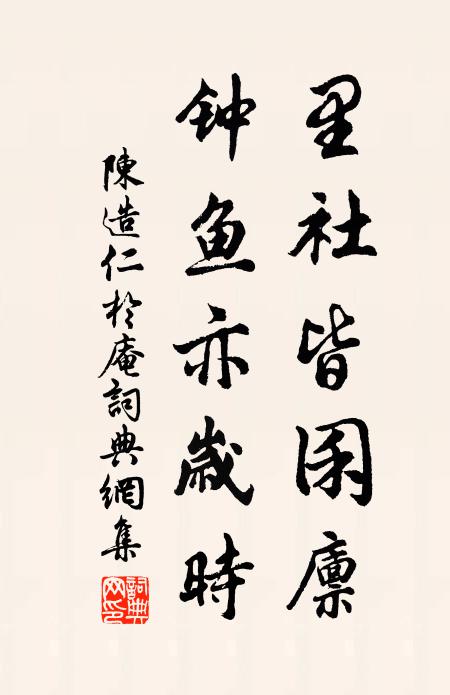 里社皆囷廪
钟鱼亦歲時
陳造仁於庵詞典網集
詞典网印